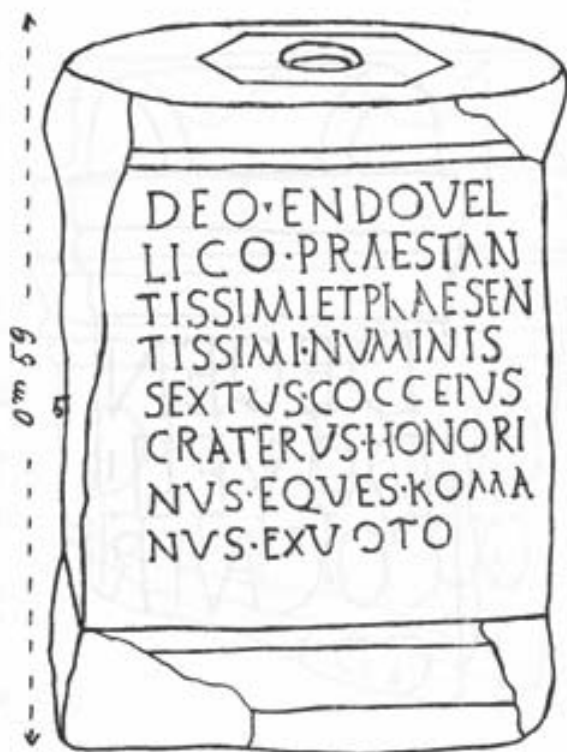 DEO·ENDOVEL
LICO·PRAESTAN
TISSIMIETPRAESEN
TISSIMI·NUMINIS
SEXTUS·COCCEIUS
CRATERUS·HONORI
NUS·EQUES·ROMA
NVS·EXVOTO
0m 59